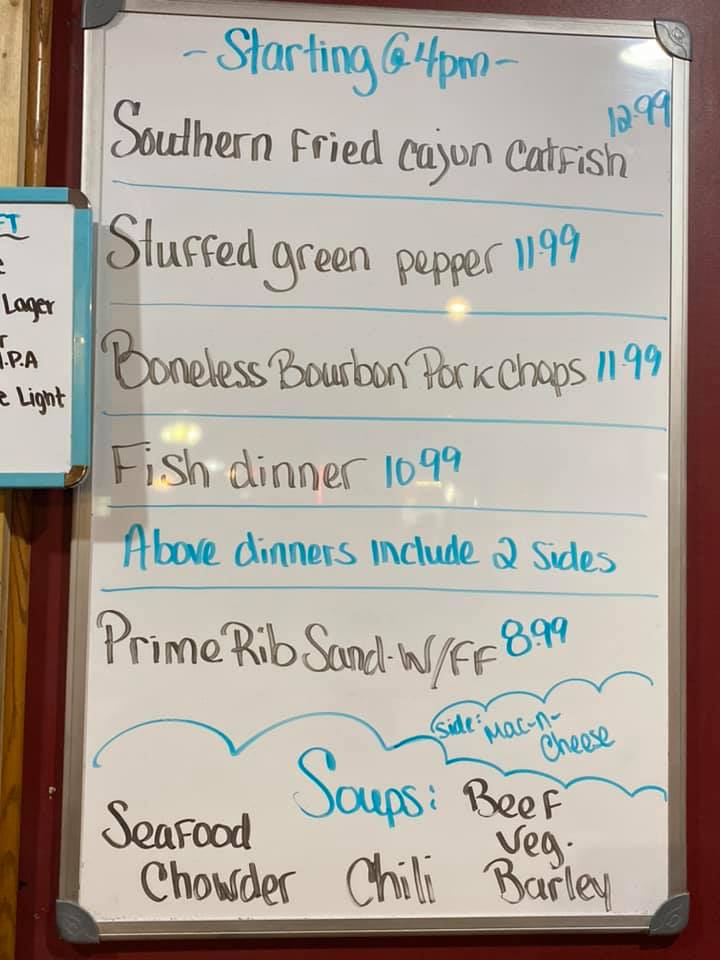 -Starting @ 4pm-
Southern Fried Cajun Catfish 12.99
Stuffed green pepper 11.99
Boneless Bourbon Pork Chops 11.99
Fish dinner 10.99
Above dinners include 2 sides
Prime Rib Sand. W/FF 8.99
Side: Mac-n-
Cheese
Soups:
Seafood
Chowder
Chili
Beef
Veg.
Barley
Lager
I.P.A
Light